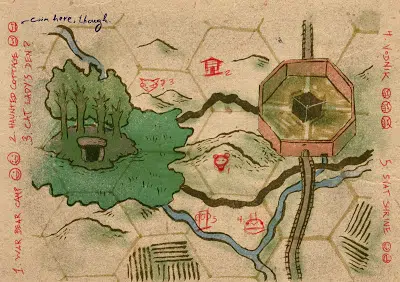 coin here, though.
1. WAR BEAR CAMP
2. HAUNTED COTTAGE
3. CAT LADY'S DEN?
4. VODNIK
5. SIAT SHRINE
?
3
2
1
5
4